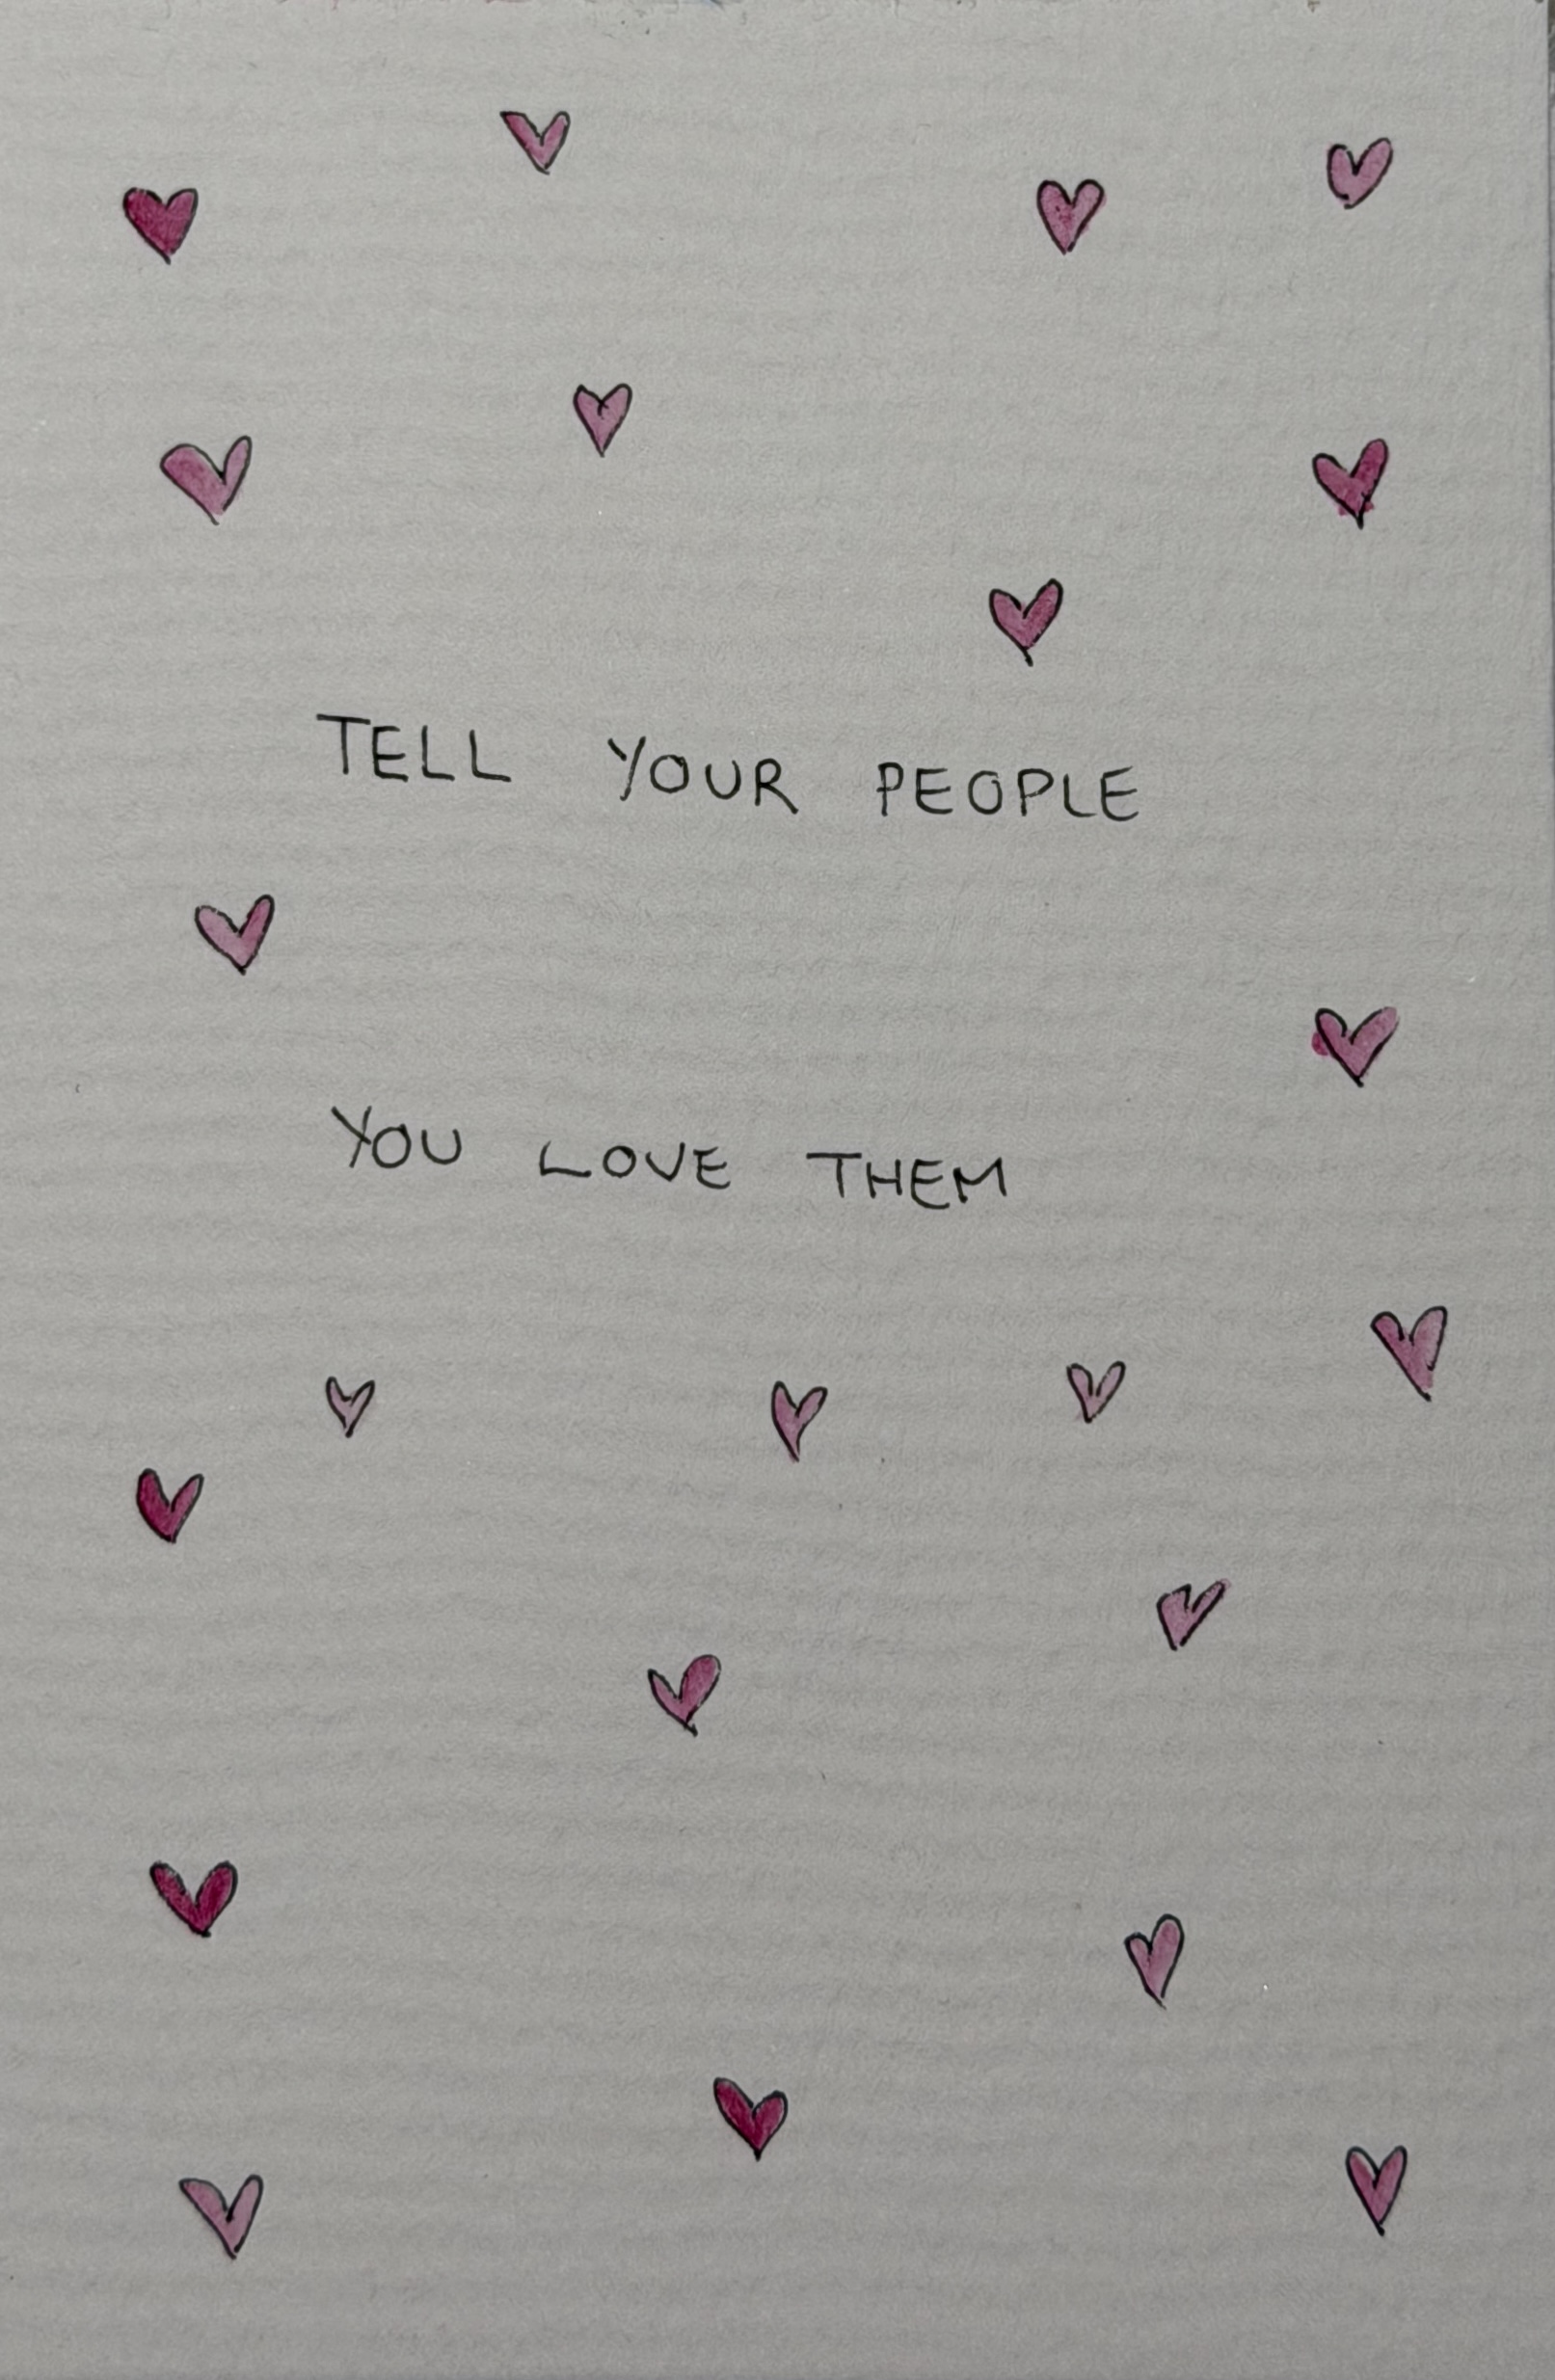 TELL YOUR PEOPLE
YOU LOVE THEM